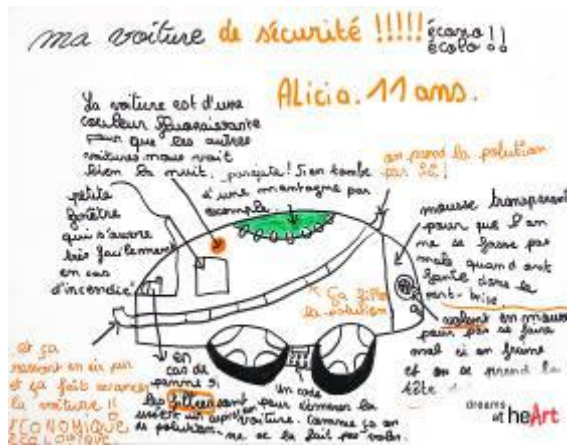 ma voiture de sécurité !!!!! écono !!
écolo
Alicia. 11 ans.
La voiture est d'une
couleur
pour que les autres
voitures nous voit
bien la nuit.
parajute! Si on tombe
d'une montagne par
exemple.
on prend la polution
par là!
petite
fenêtre
qui s'ouvre
très facilement
en cas
d'incendie
mousse transparent
pour que l'on
ne se fasse pas
mal quand ont
dans le
la polution
volant en mousse
pour pas se faire
mal si on freine
et on se prend la
tête
et ça
ressort en air pur
et ça fait avancer
la voiture !!
ECONOMIQUE
ECOLOGIQUE
en
cas de
panne
un code
pour démarrer la
voiture. Comme ça on
ne se la fait pas voler.
dreams
at heArt